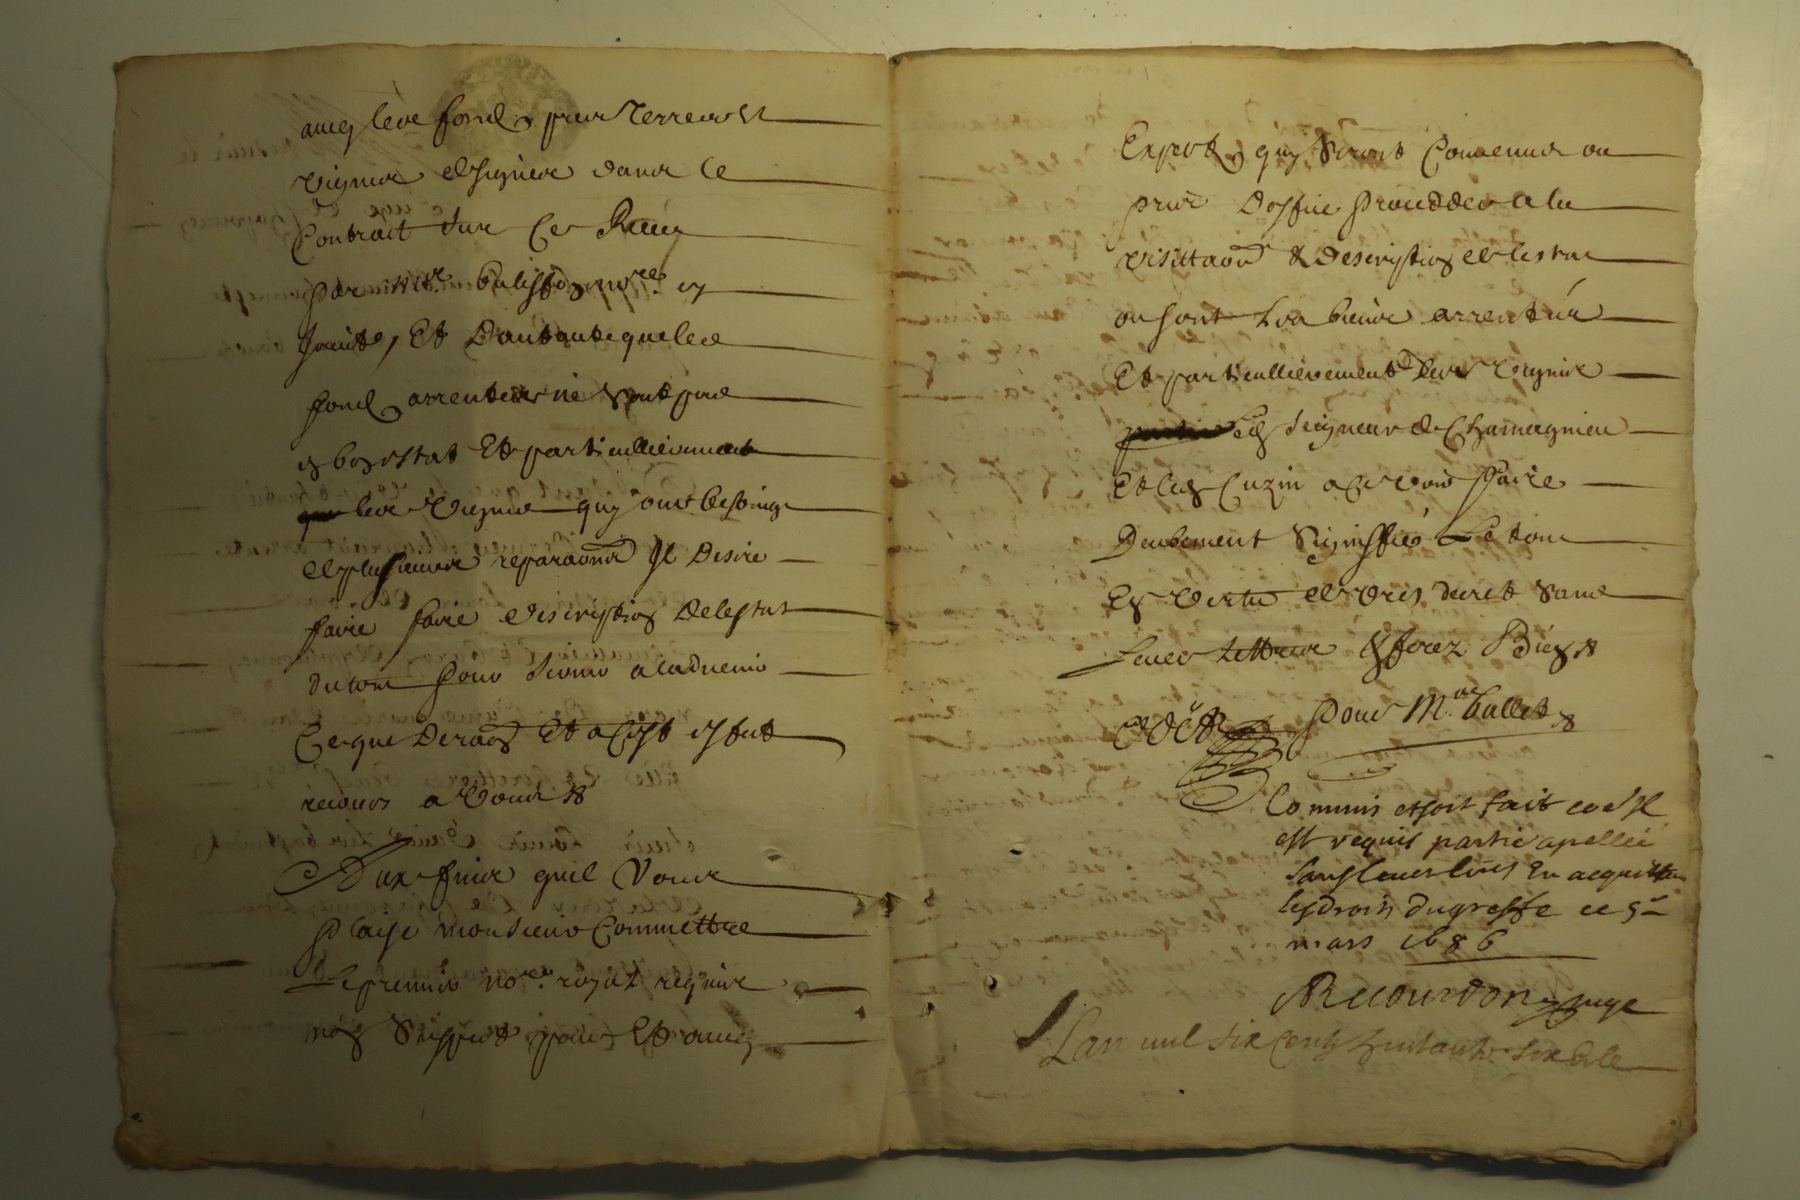 avecq leur fonds prés Terres et
vignes designées dans le
Contrait sur Ce Receu
par Me. notre. cy
Joint, Et Dautant que les
fonds arrentés ne sont pas
en bon estat Et particullierement
les vignes quy ont besoings
de plusieurs reparaons Il Desire
faire faire description de lestat
du tout pour servir a ladvenir
Ce que de raon Et a Cest effect
recours a Vous
Aux fins quil Vous
Plaise Monsieur Commettre
Le premier nore. royal requis
non Suspect pour Et avecq
Expertz quy Seront Convenus ou
pris Doffice proceder a la
visittaon & description de lestat
ou sont les biens arrentés
Et particullierement des vignes
led Seigneur de Chamagnieu
Et led Cuzin a ce voir faire
Deubement Signiffié Le tout
En Vertu de Vres decret Sans
Lever Lettres & ferez Bien
Pour Mre Ballet
Commis et soit fait co Il
est requis partie apellée
sans lever lres En acquittan
les droits du greffe ce 5e
mars 1686
Recourdon Juge
Lan mil six Cents huitante six & le